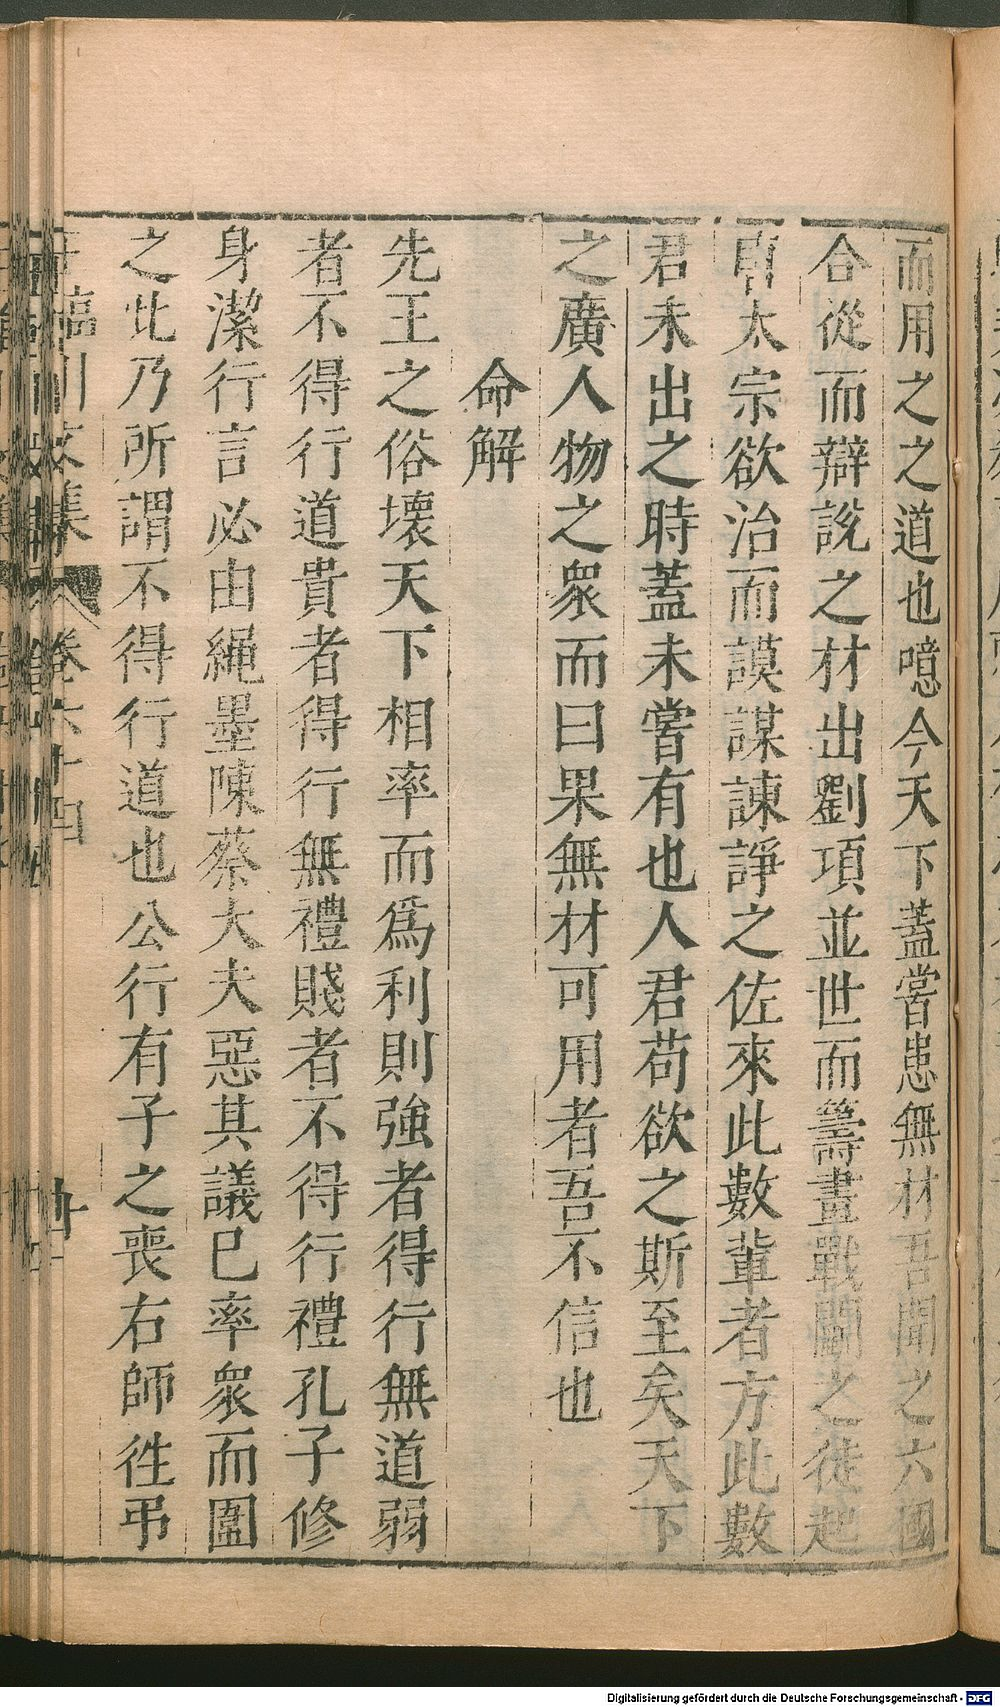 而用之之道也噫今天下蓋嘗患無材吾聞之六國
合從而辯說之材出劉項並世而籌畫戰鬭之徒起
唐太宗欲治而謨謀諫諍之佐來此數輩者方此數
君未出之時蓋未嘗有也人君苟欲之斯至矣天下
之廣人物之衆而曰果無材可用者吾不信也
命解
先王之俗壞天下相率而爲利則強者得行無道弱
者不得行道貴者得行無禮賤者不得行禮孔子修
身潔行言必由繩墨陳蔡大夫惡其議已率衆而圍
之此乃所謂不得行道也公行有子之喪右師徃弔
川文集 卷六十四
Digitalisierung gefördert durch die Deutsche Forschungsgemeinschaft - DFG